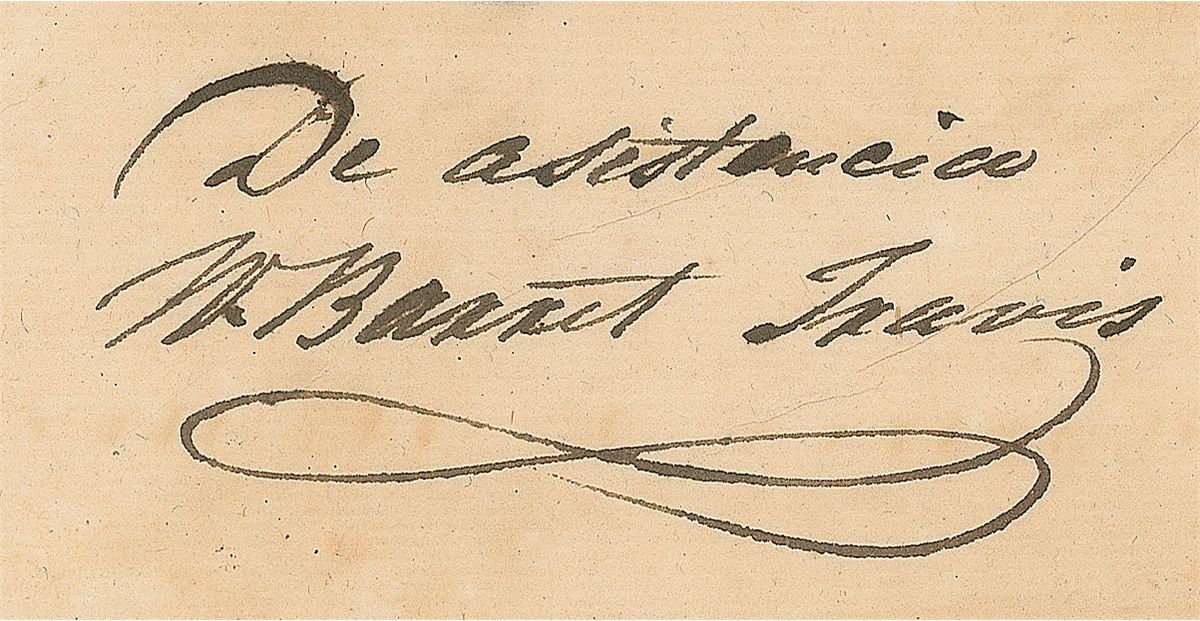 De asistencia
W Barret Travis